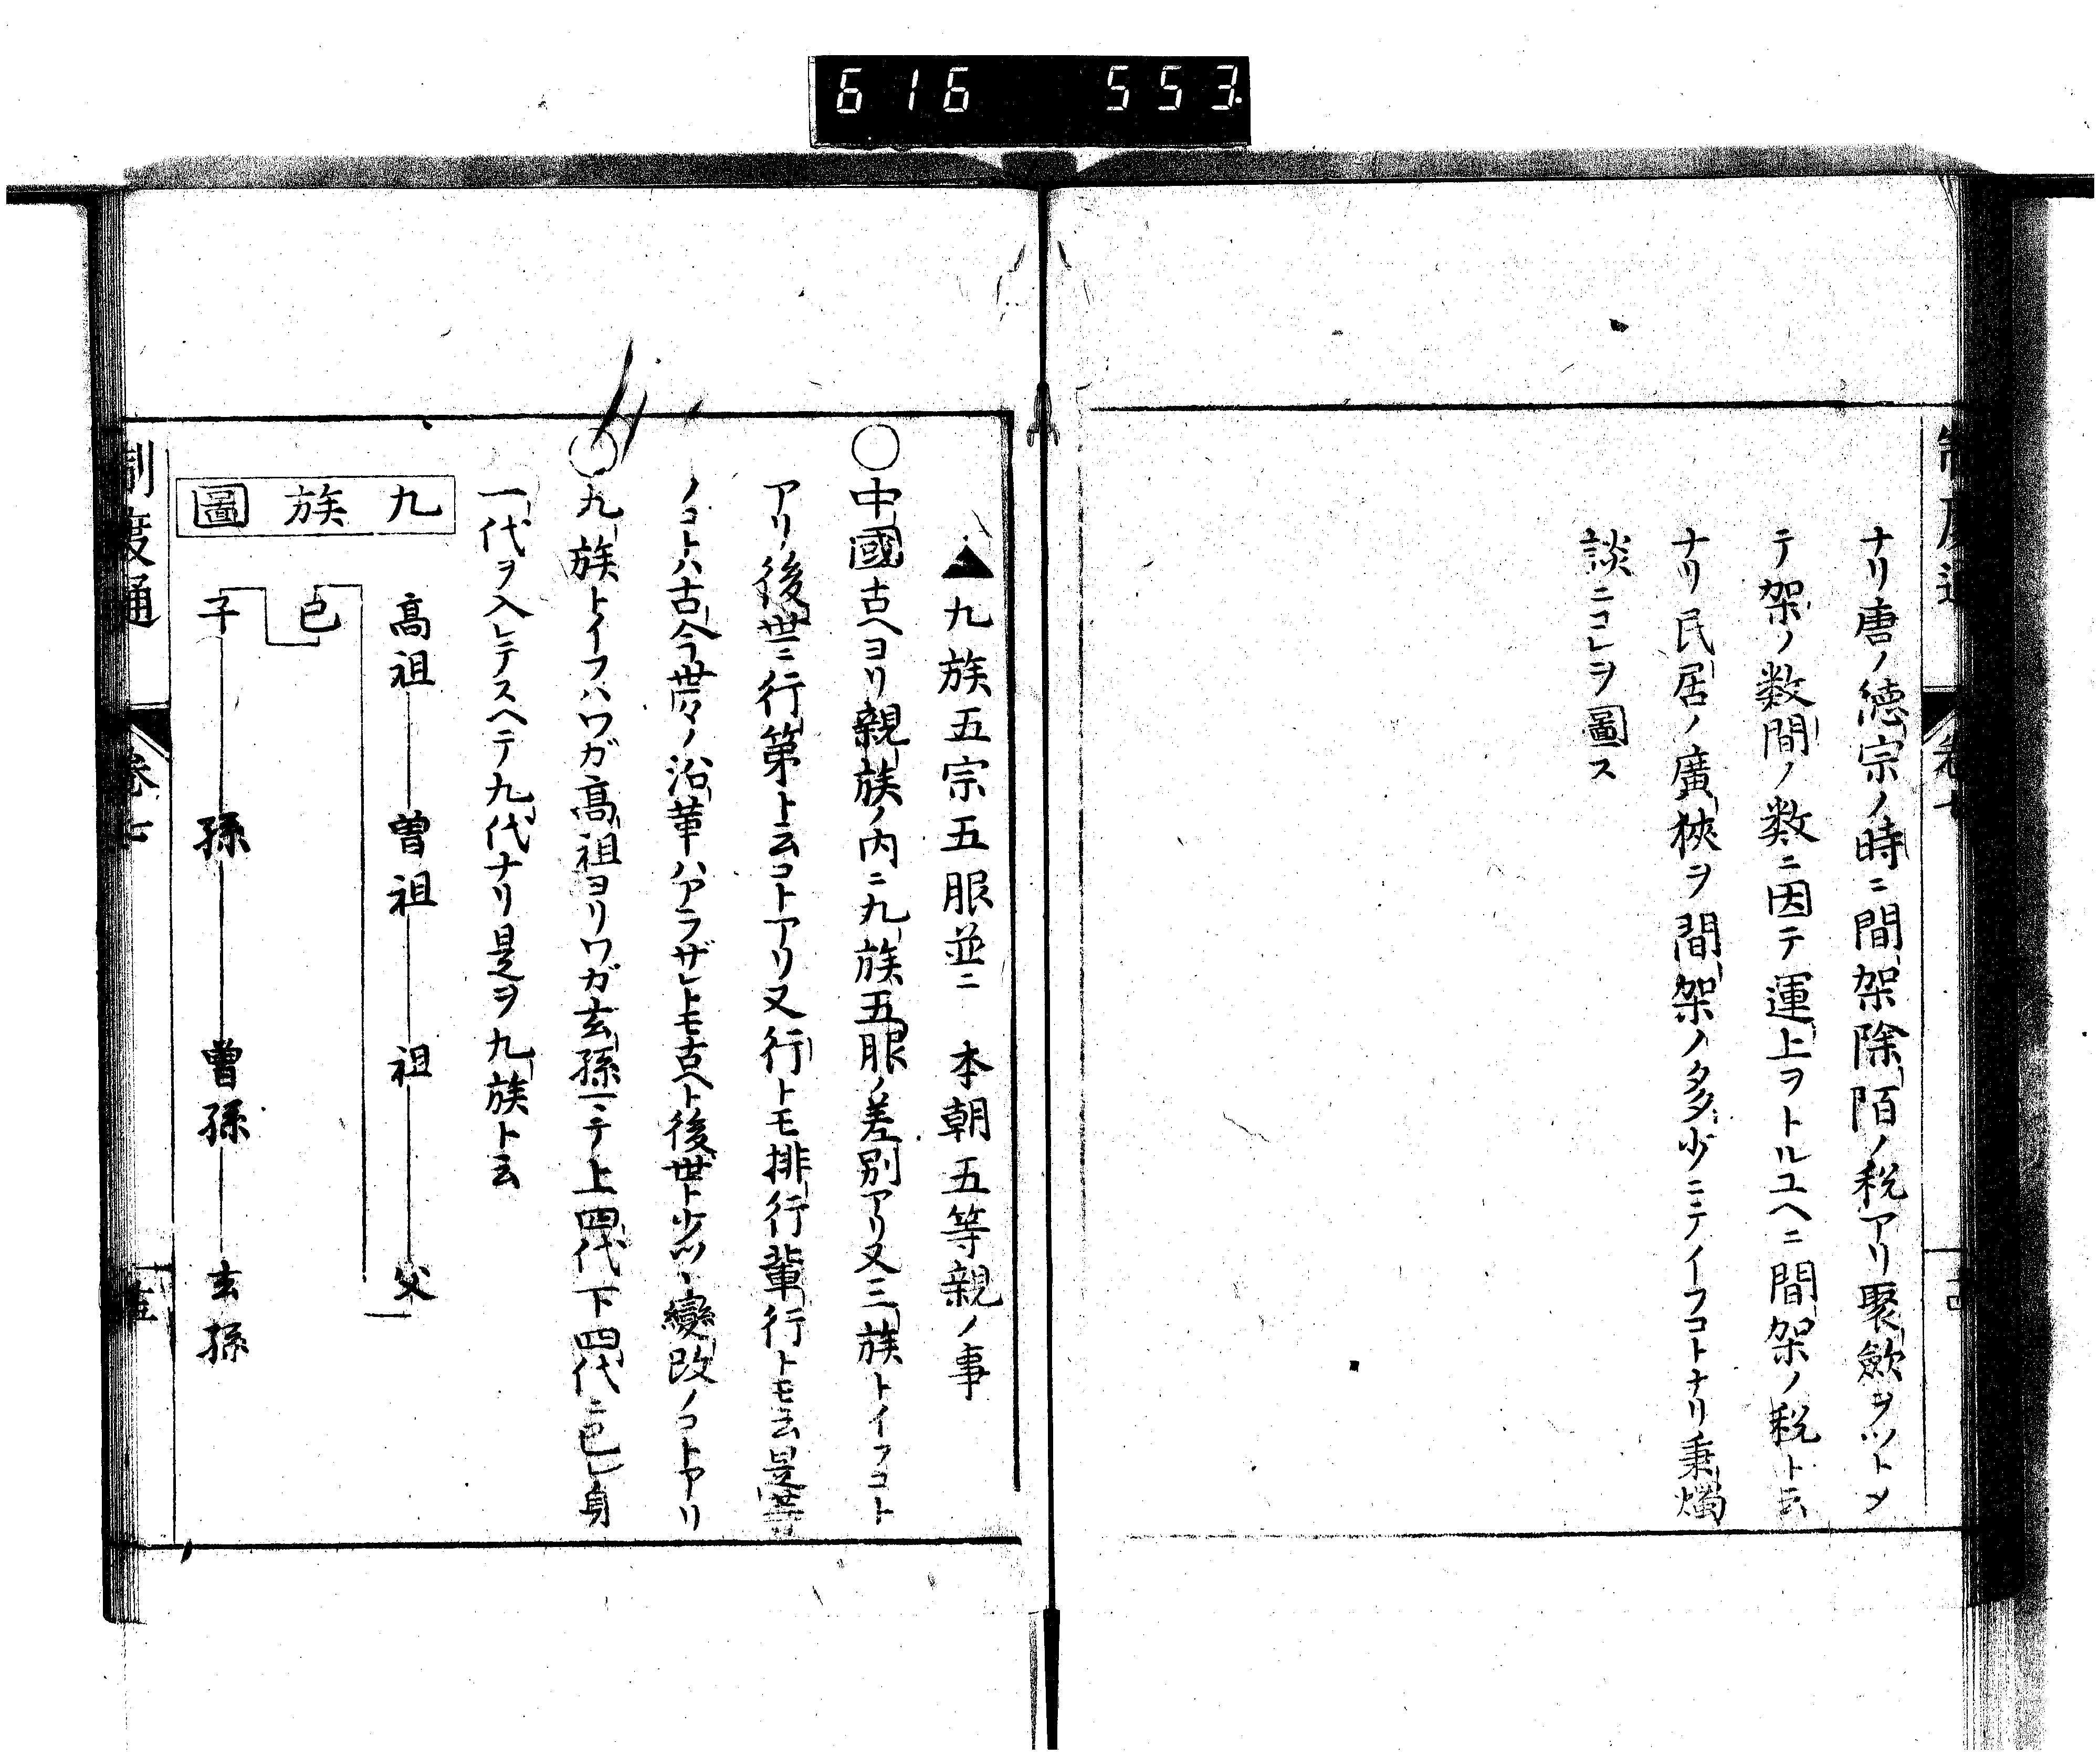 616 553
ナリ唐ノ徳宗ノ時ニ間架除陌ノ税アリ聚斂ヲツトメ
テ架ノ数間ノ数ニ因テ運上ヲトルユヘニ間架ノ税ト云
ナリ民居ノ廣狹ヲ間架ノ多少ニテイフコトナリ秉燭
談ニコレヲ圖ス
▲九族五宗五服並ニ 本朝五等親ノ事
〇中國古ヘヨリ親族ノ内ニ九族五服ノ差別アリ又三族トイフコト
アリ後世ニ行第ト云コトアリ又行トモ排行輩行トモ云是等
ノコトハ古今世々ノ沿革ハアラザレトモ古ヘト後世ト少ツヽ變改ノコトアリ
〇九族トイフハワガ高祖ヨリワガ玄孫マテ上四代下四代ニ己レ身
一代ヲ入レテスヘテ九代ナリ是ヲ九族ト云
九族圖
高祖 曽祖 祖 父
己
子 孫 曽孫 玄孫
制度通 卷七